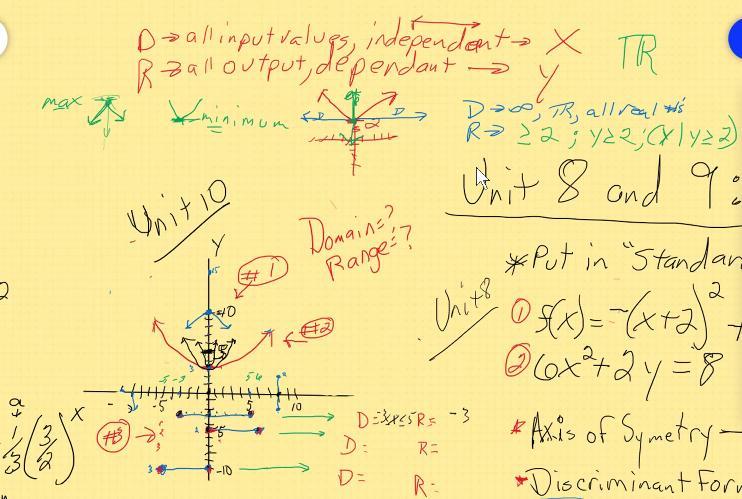 D → all input values, independent → X
R → all output, dependant → y
TR
max
minimum
D
D
2
D → ∞, TR, all real #'s
R → ≥ 2 ; y ≥ 2 ; (x | y ≥ 2)
Unit 8 and 9 :
Unit 10
Domain = ?
Range = ?
*Put in "Standar
Y
#1
10
#2
Unit 8
① f(x) = -(x+2)² +
② 6x² + 2y = 8
-5
5
10
a
1/3 (3/2)^x
#3
-5
-10
D = -3≤x≤5 R = -3
D = R =
D = R =
* Axis of Symetry —
* Discriminant Form